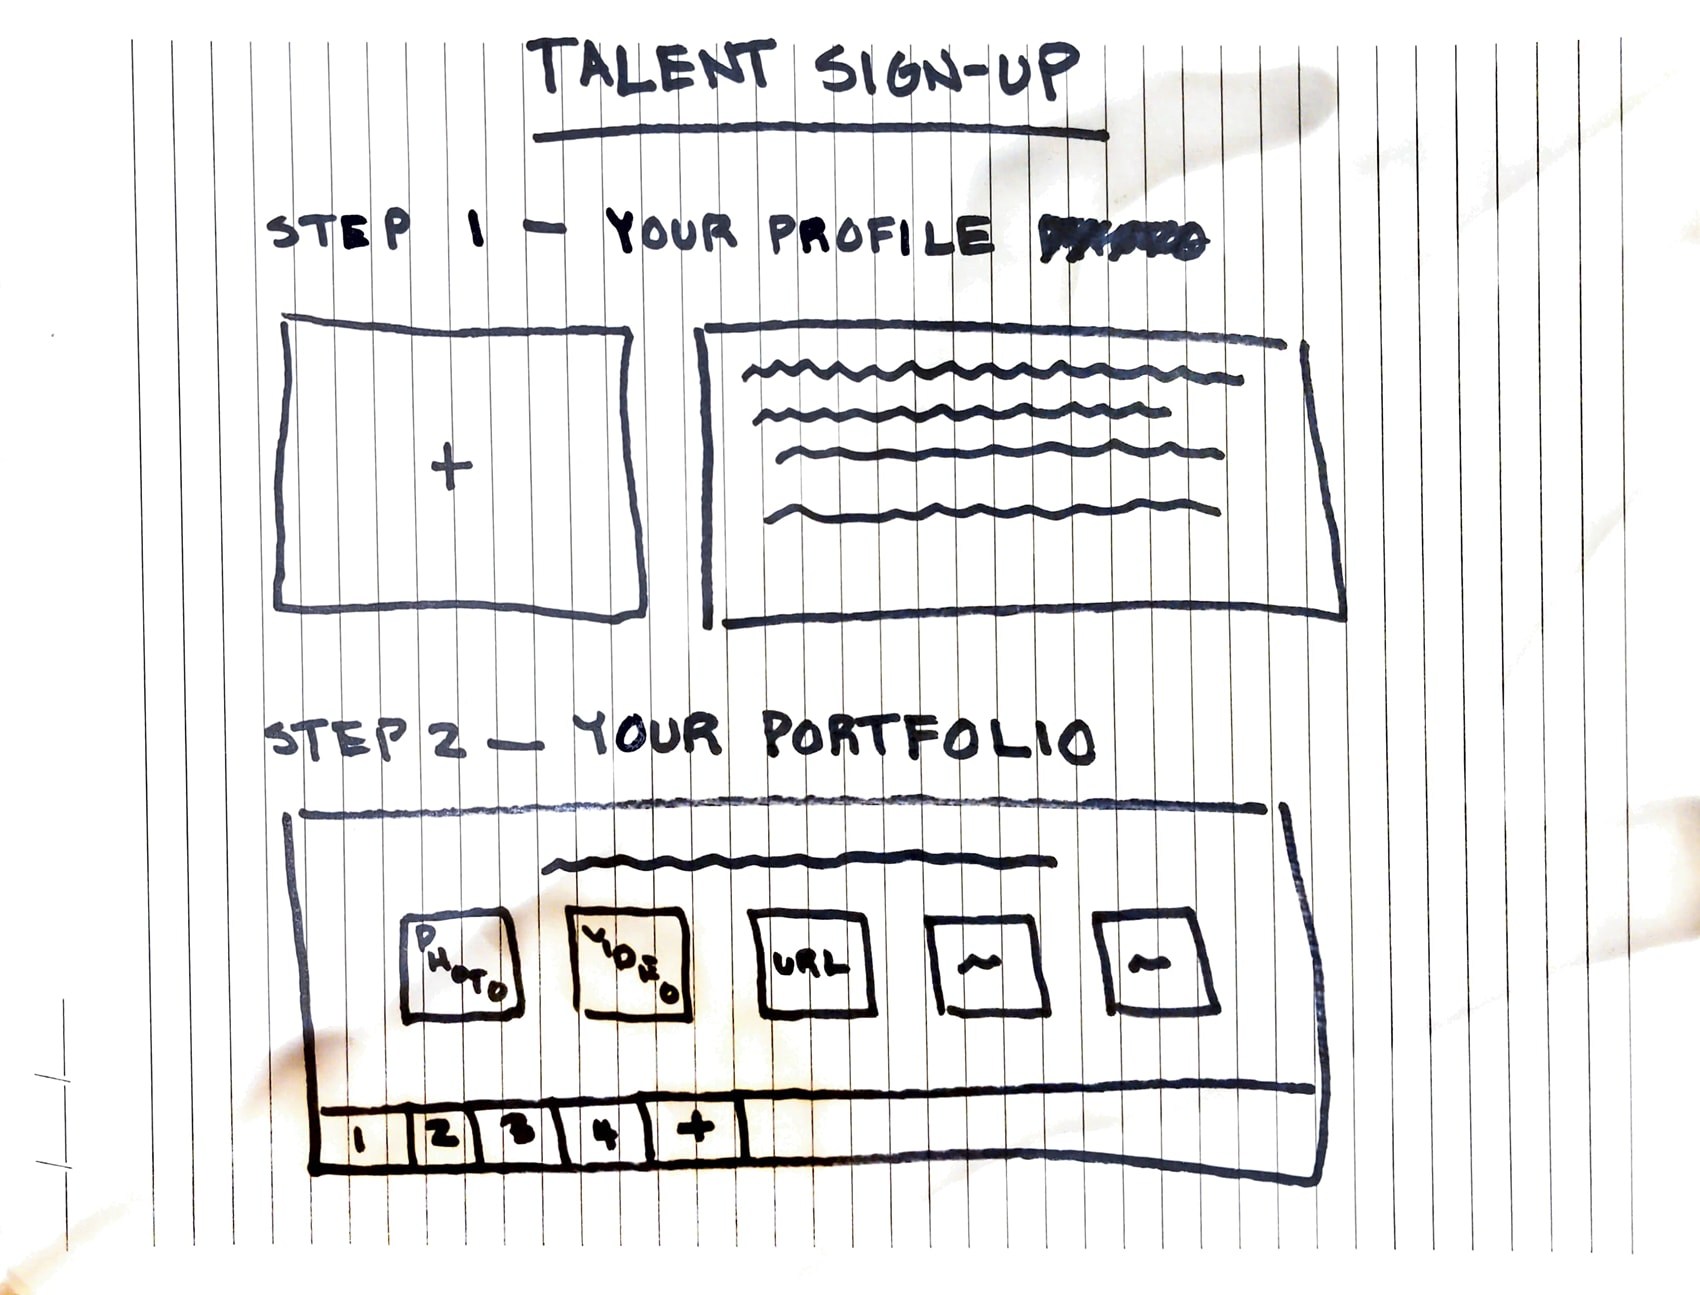 TALENT SIGN-UP
STEP 1 - YOUR PROFILE
+
STEP 2 - YOUR PORTFOLIO
PHOTO VIDEO URL ~ ~
1 2 3 4 +